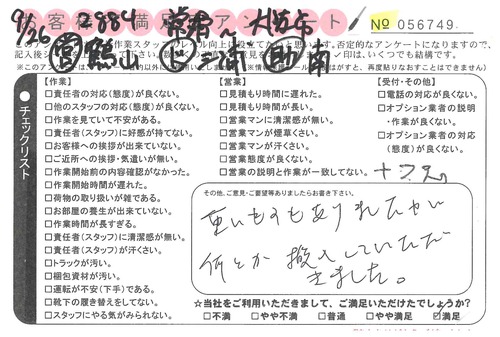 お客様満足アンケート
№ 056749
9/26 2884
このアンケートは作業スタッフのレベル向上に役立てたいと思います。否定的なアンケートになりますので、
印は、いくつでも結構です。
チェックリスト
【作業】
□責任者の対応(態度)が良くない。
□他のスタッフの対応(態度)が良くない。
□作業を見ていて不安がある。
□責任者(スタッフ)に好感が持てない。
□お客様への挨拶が出来ていない。
□ご近所への挨拶・気遣いが無い。
□作業開始前の内容確認がなかった。
□作業開始時間が遅れた。
□荷物の取り扱いが雑である。
□お部屋の養生が出来ていない。
□作業時間が長すぎる。
□責任者(スタッフ)に清潔感が無い。
□責任者(スタッフ)が汗くさい。
□トラックが汚い。
□梱包資材が汚い。
□運転が不安(下手)である。
□靴下の履き替えをしてない。
□スタッフにやる気がみられない。
【営業】
□見積もり時間に遅れた。
□見積もり時間が長い。
□営業マンに清潔感が無い。
□営業マンが煙草くさい。
□営業マンが汗くさい。
□営業態度が良くない。
□営業の説明と作業が一致してない。
【受付・その他】
□電話の対応が良くない。
□オプション業者の説明
・作業が良くない。
□オプション業者の対応
(態度)が良くない。
その他、ご意見・ご要望等ありましたらお書き下さい。
重いものもありましたが
何とか搬入していただ
きました。
☆当社をご利用いただきまして、ご満足いただけたでしょうか?
□不満 □やや不満 □普通 □やや満足 ☑満足